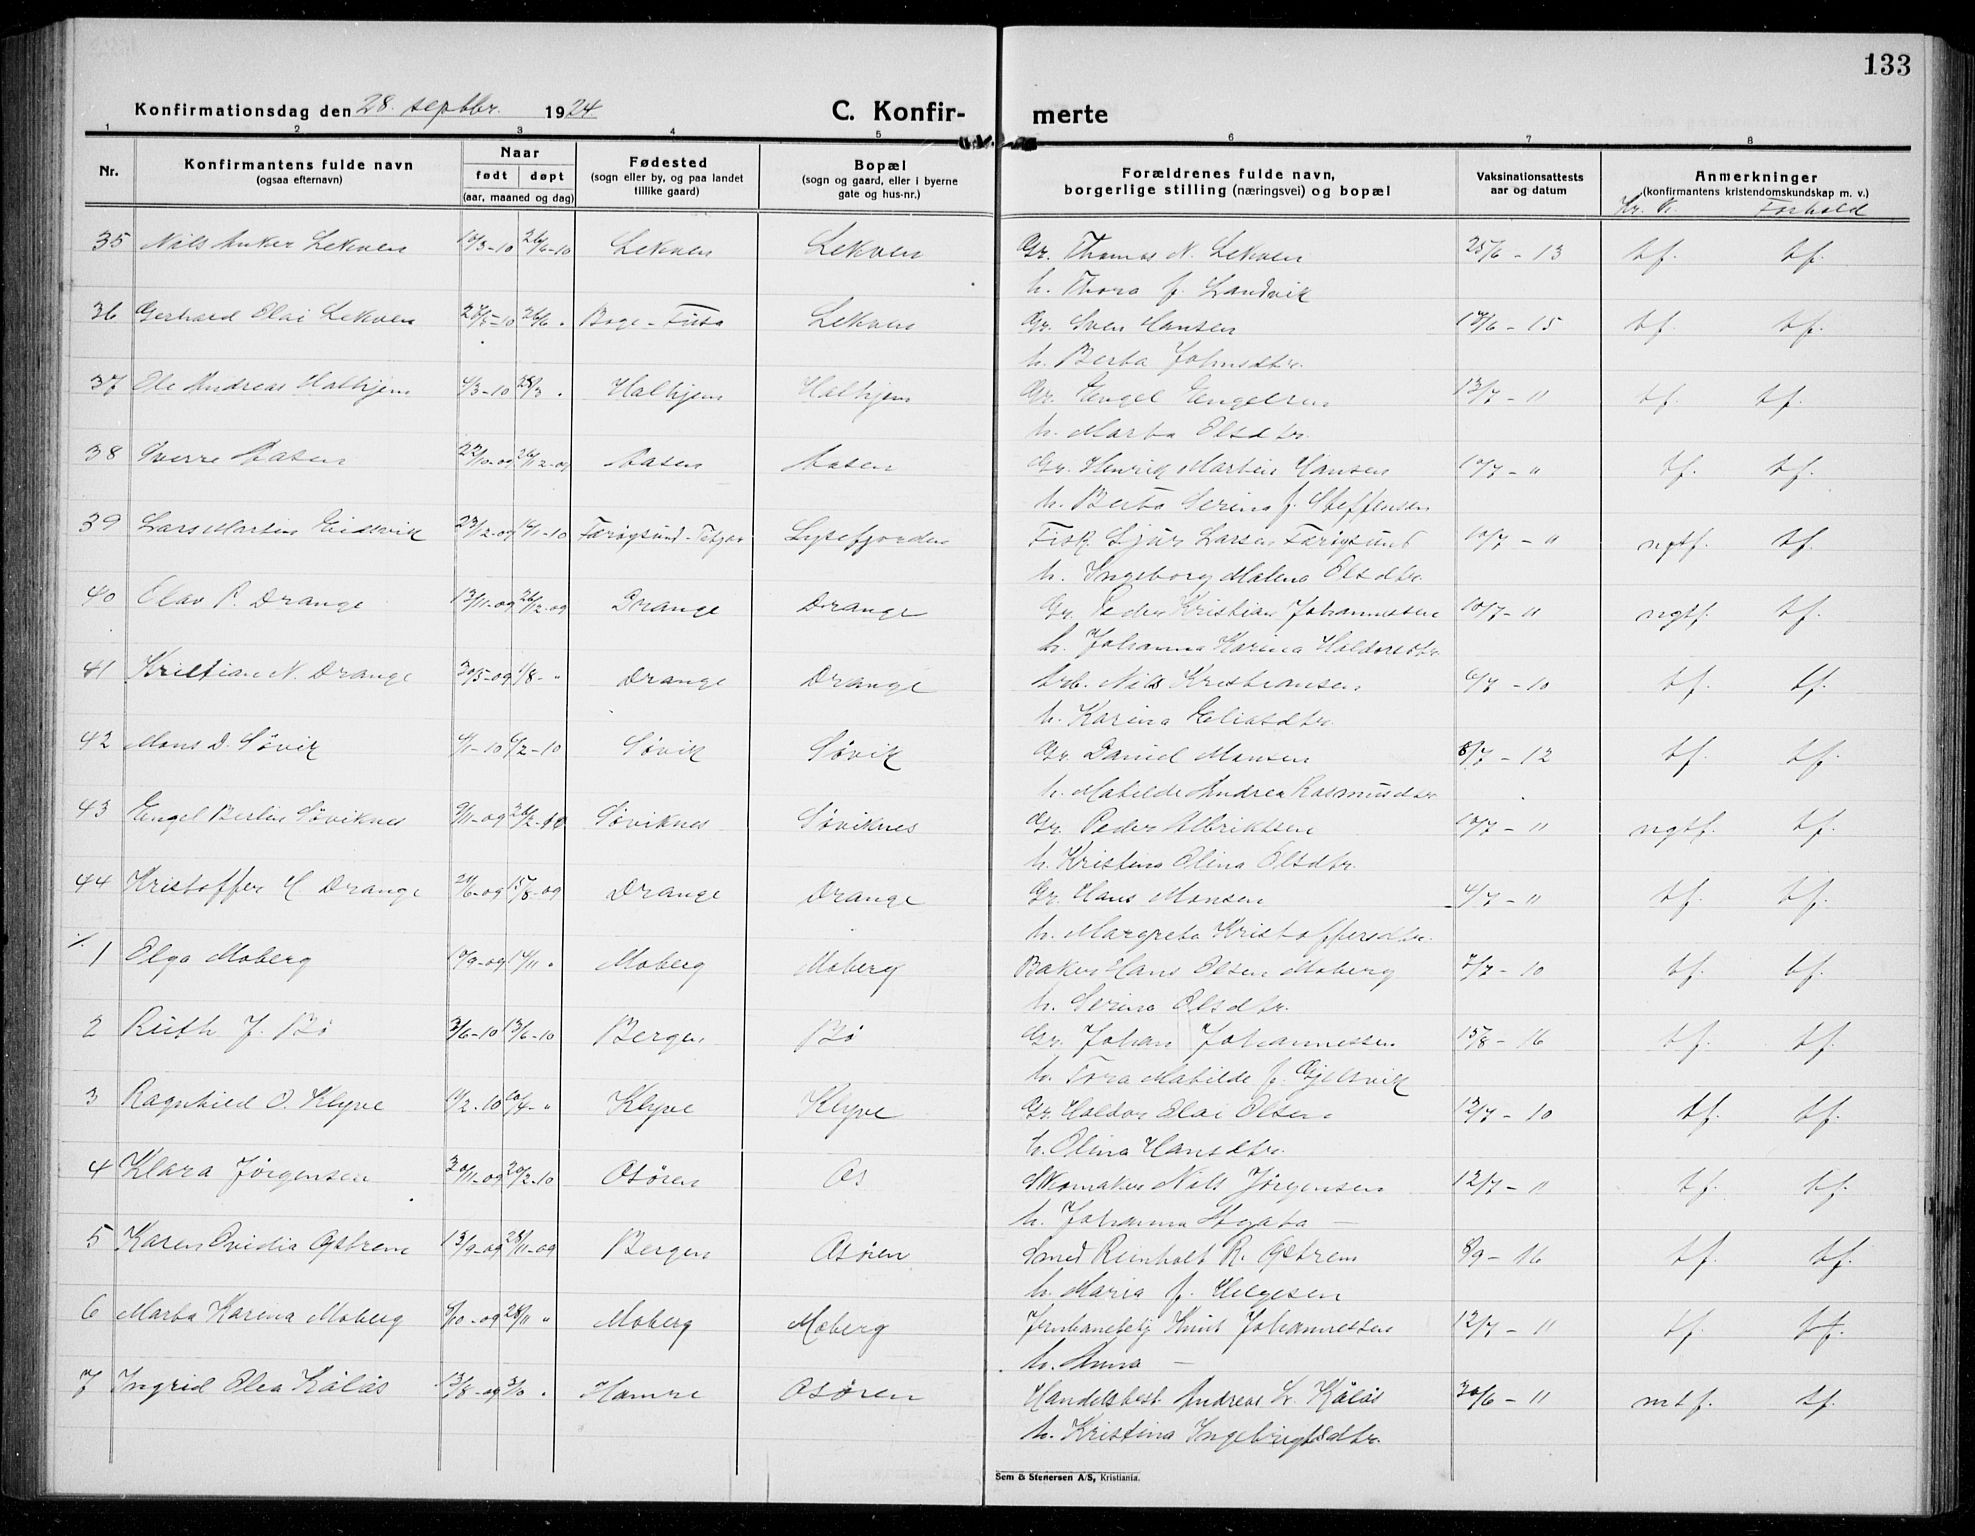 133
Konfirmationsdag den 28. septbr. 1924 C. Konfir- merte
1 2 3 4 5 6 7 8
Nr. Konfirmantens fulde navn (ogsaa efternavn) Naar født døpt (aar, maaned og dag) Fødested (sogn eller by, og paa landet tillike gaard) Bopæl (sogn og gaard, eller i byerne gate og hus-nr.) Forældrenes fulde navn, borgerlige stilling (næringsvei) og bopæl Vaksinationsattests aar og datum Anmerkninger (konfirmantens kristendomskundskap m. v.)
Kr. k. Forhold
35 Nils Anker Lekven 10/3-10 26/6-10 Lekven Lekven Gr. Thomas N. Lekven 25/6 - 13 tf. tf.
h. Thora f. Landvik
36 Gerhard Olai Lekven 27/5-10 26/6 " Lekven Gr. Sven Hansen 17/6 - 15 tf. tf.
h. Berta Johnsdtr.
37 Ole Andreas Halhjem 4/3-10 28/3 " Halhjem Halhjem Gr. Engel Engelsen 13/7 - 11 tf. tf.
h. Marta Olsdtr.
38 Sverre Aasen 22/10-09 26/12-09 Aasen Aasen Gr. Henrik Martin Hansen 10/7 - " tf. tf.
h. Berta Serina f. Steffensen
39 Lars Martin Eidsvik 27/12-09 16/1-10 Færøysund Lysefjorden Fisk. Sjur Larsen Færøysund 10/7 - " ngtf. tf.
h. Ingeborg Malena Olsdtr.
40 Olav P. Drange 13/11-09 26/12-09 Drange Drange Gr. Peder Kristian Johannessen 10/7 - 11 ngtf. tf.
h. Johanna Karina Haldorsdtr.
41 Kristian N. Drange 30/5-09 1/8 - " Drange Drange Arb. Nils Kristiansen 6/7 - 10 tf. tf.
h. Karina Eliasdtr.
42 Mons D. Søvik 4/1-10 6/2-10 Søvik Søvik Gr. Daniel Monsen 8/7 - 12 tf. tf.
h. Matilde Andrea Rasmusdtr.
43 Engel Berlin Søviknes 9/11-09 26/2-10 Søviknes Søviknes Gr. Peder Albriktsen 10/7 - 11 ngtf. tf.
h. Kristina Olina Olsdtr.
44 Kristoffer H Drange 24/6-09 15/8-09 Drange Drange Gr. Hans Monsen 4/7 - 11 tf. tf.
h. Margreta Kristoffersdtr.
1 Olga Moberg 17/9-09 14/11 " Moberg Moberg Baker Hans Olsen Moberg 7/7 - 10 tf. tf.
h. Serina Olsdtr.
2 Ruth J. Bø 3/6-10 13/6-10 Bergen Bø Gr. Johan Johannessen 15/8 - 16 tf. tf.
h. Tora Matilde f. Gjelsvik
3 Ragnhild O. Klyve 11/2-10 10/4 - " Klyve Klyve Gr. Haldor Olai Olsen 12/7 - 10 tf. tf.
h. Olina Hansdtr.
4 Klara Jørgensen 30/11-09 20/2-10 Osøren Os Skomaker Nils Jørgensen 12/7 - 11 tf. tf.
h. Johanna Agata —
5 Karen Ovidia Østrem 13/9-09 28/11-09 Bergen Osøren Smed Reinholt R. Østrem 8/9 - 16 tf. tf.
h. Maria f. Helgesen
6 Marta Karina Moberg 5/10-09 28/11 " Moberg Moberg Jernbanebetj. Knut Johannessen 12/7 - 11 tf. tf.
h. Anna —
7 Ingrid Olea Kålås 13/8-09 " Hamre Osøren Handelsbest. Andreas L. Kålås 30/6 - 11 mtf. tf.
h. Kristina Ingebrigtsdtr.
Sem & Stenersen A/S, Kristiania.